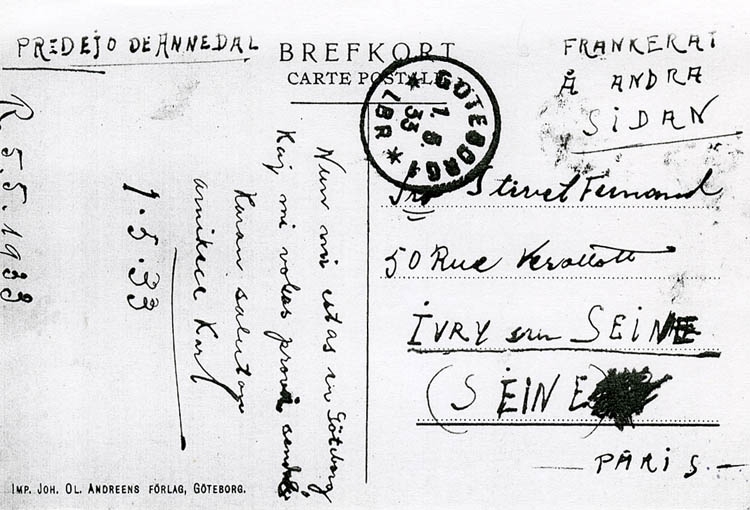 PREDEJO DE ANNEDAL
BREFKORT
CARTE POSTALE
FRANKERAT
Å ANDRA
SIDAN
GÖTEBORG 1
1.5.
33
LBR
Nun mi estas in Göteborg
Kaj mi volas provi sendi
Karan salutojn
amikece Karl
1.5.33
R. 5.5.1933
Stervel Fernand
50 Rue
IVRY sur SEINE
(SEINE)
PARIS
IMP. JOH. OL. ANDREENS FÖRLAG, GÖTEBORG.